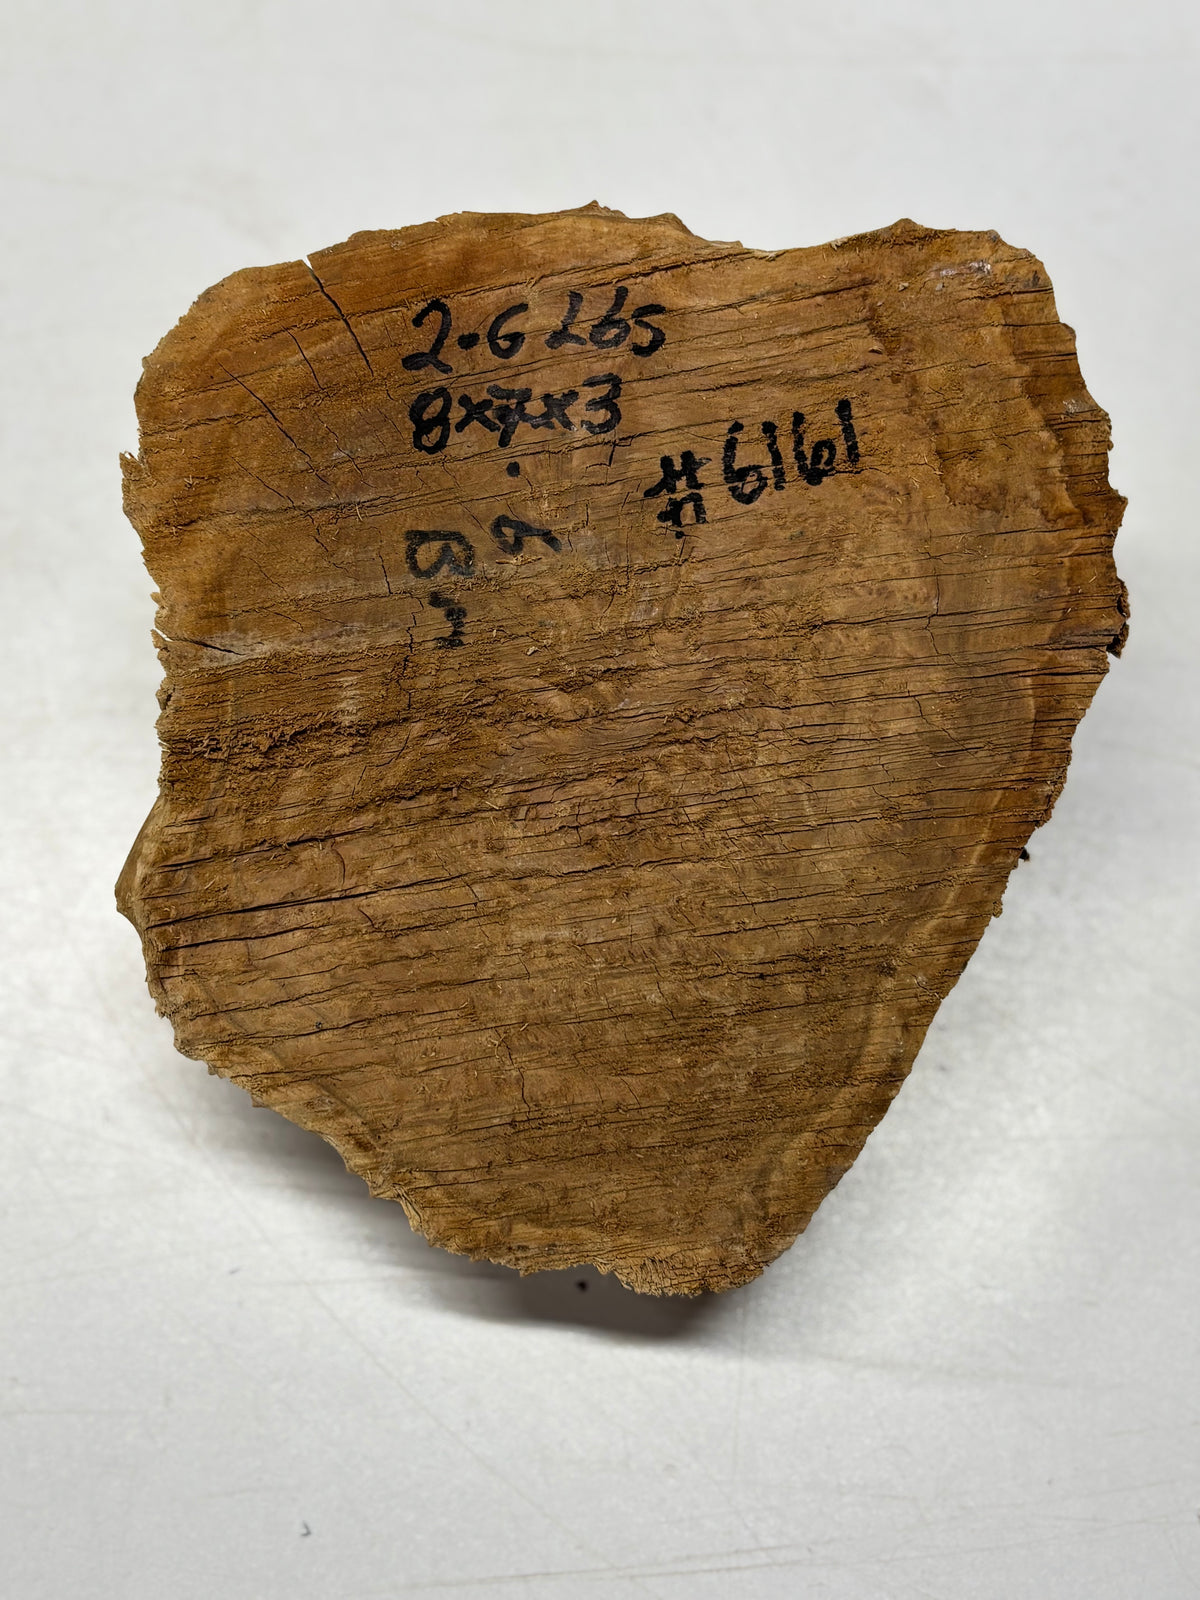 2.6 Lbs
8x7x3
#6161